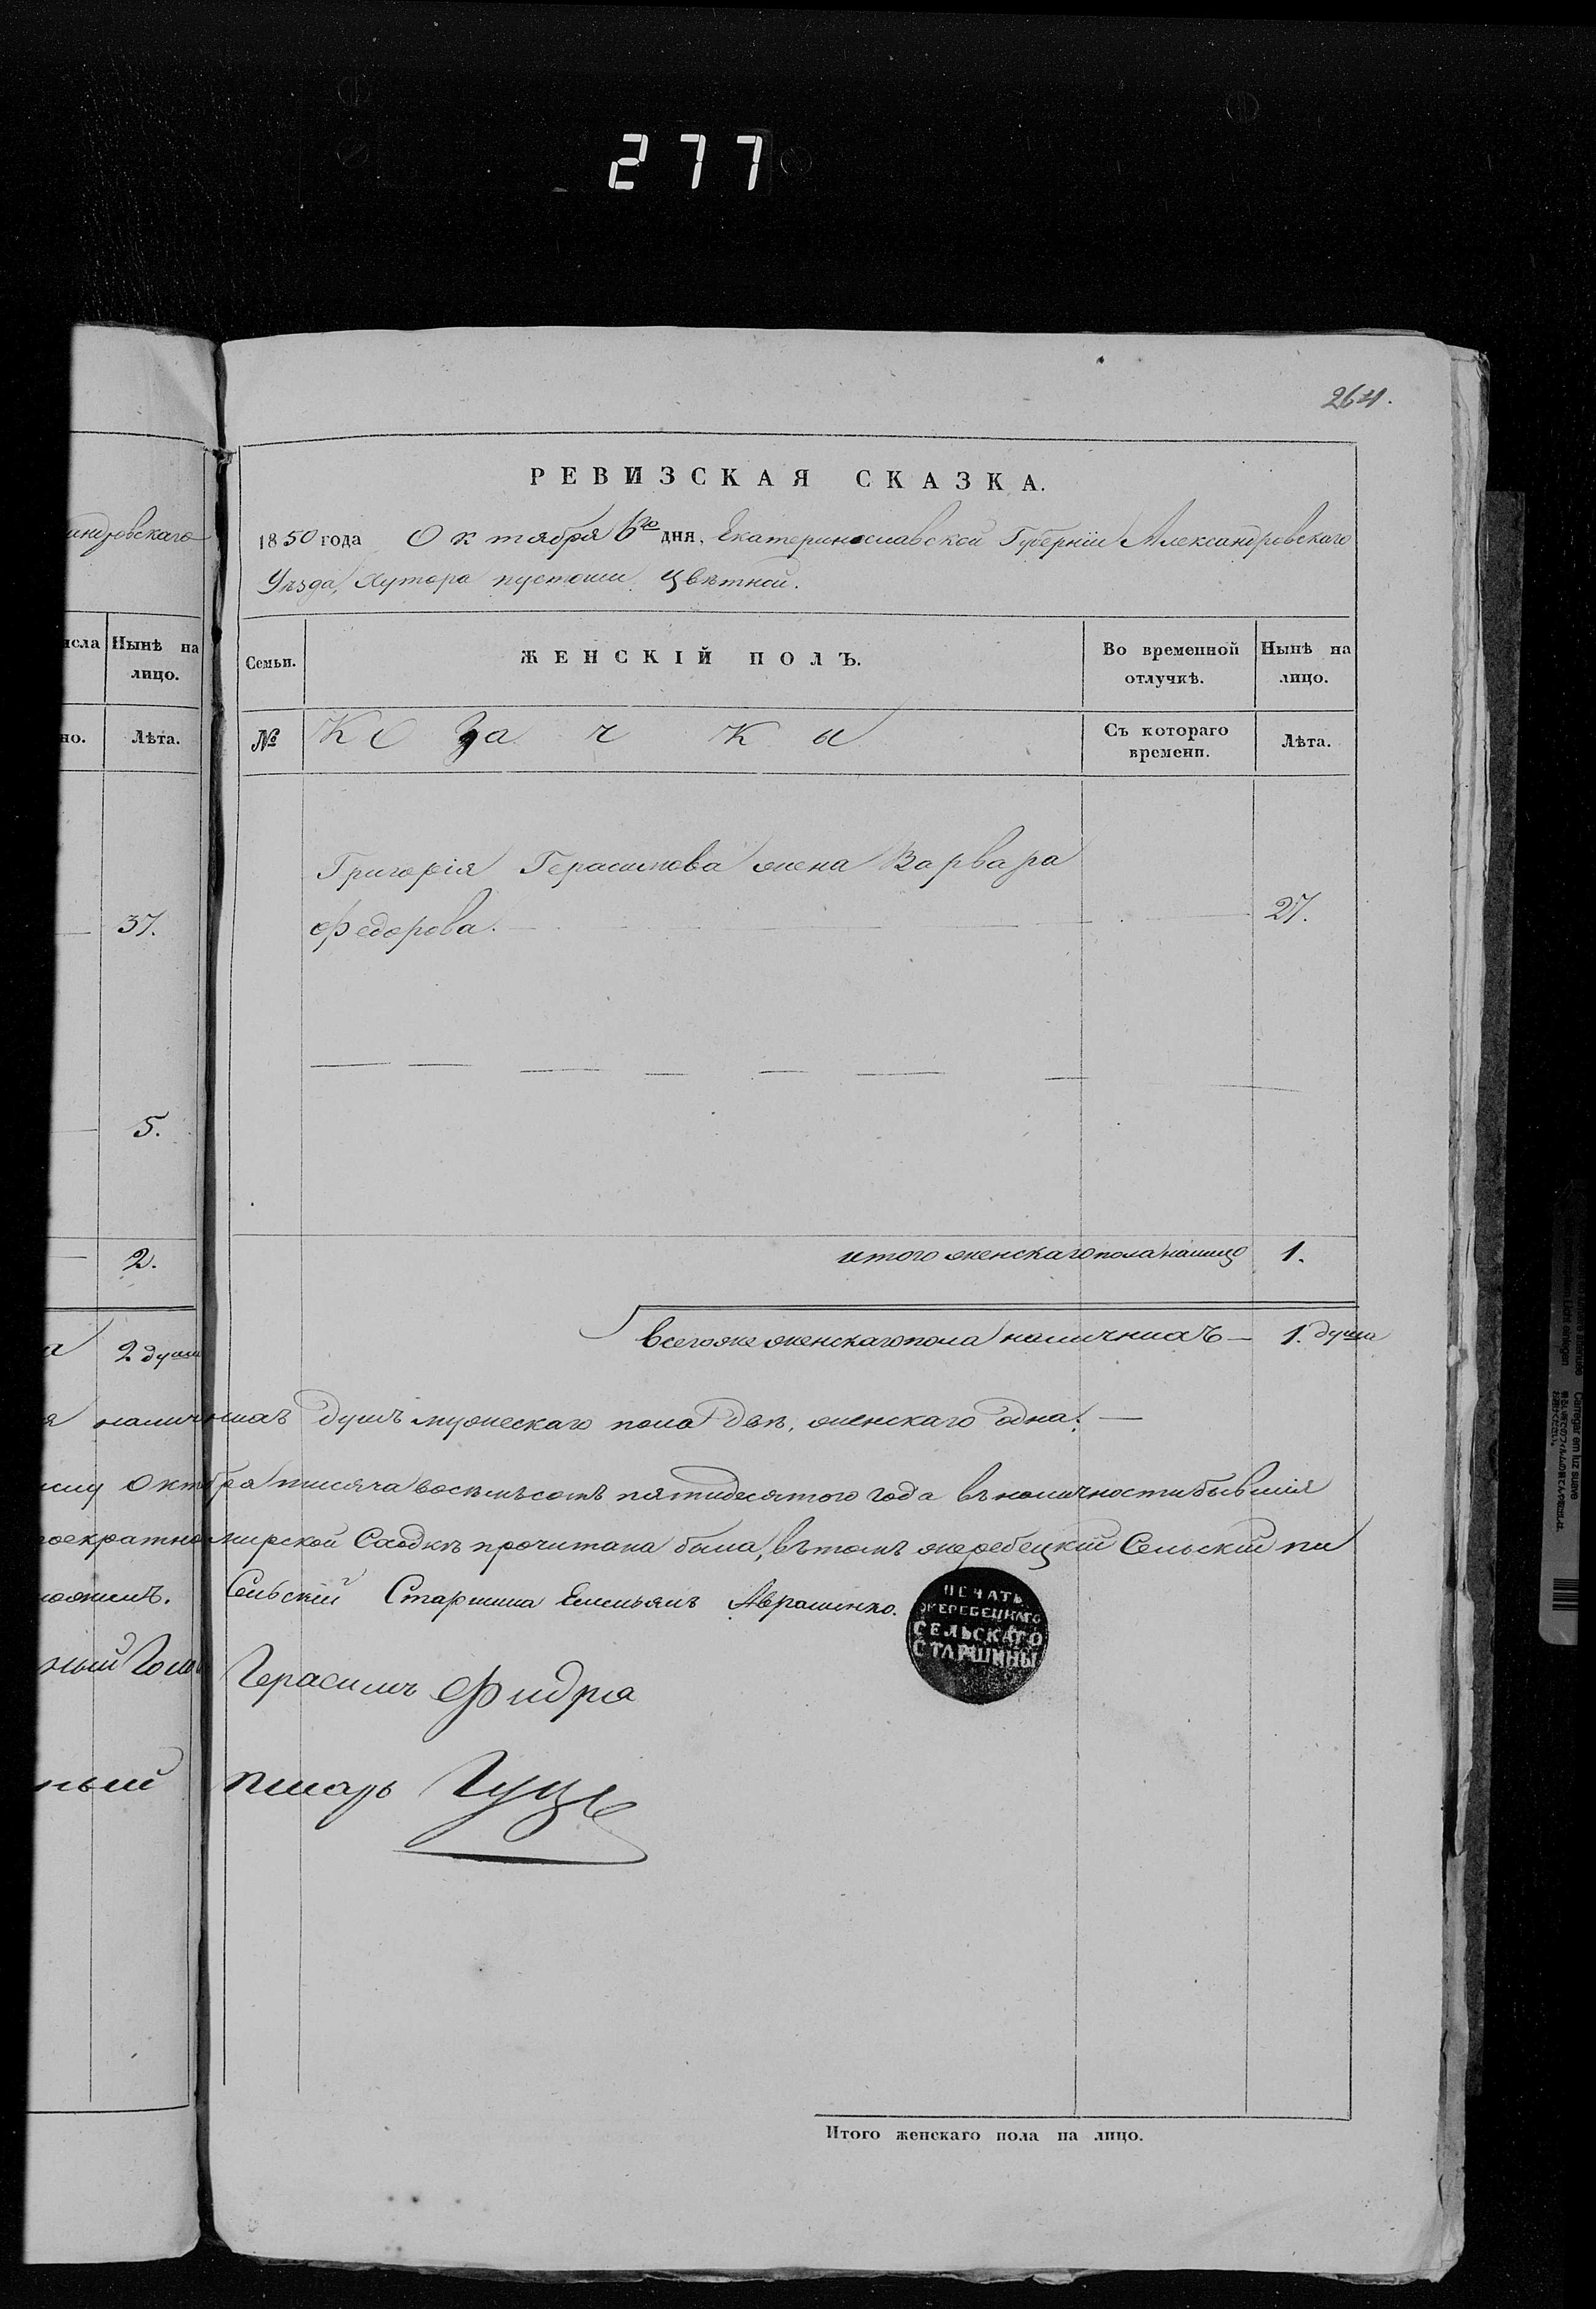 277
264.
РЕВИЗСКАЯ СКАЗКА.
1850 года Октября 6го дня. Екатеринославской Губерніи Александровскаго
Уѣзда, Хутора пустоши Цвѣтной.
ндровскаго
исла Нынѣ на лицо.
но. Лѣта.
37.
5.
2.
2 души
Семьи. ЖЕНСКІЙ ПОЛЪ. Во временной отлучкѣ. Нынѣ на лицо.
№ Козачки Съ котораго времени. Лѣта.
Григорія Герасимова жена Варвара
Федорова. 27.
итого женскаго пола налицо 1.
Всего же женскаго пола наличныхъ 1. душа
я наличныхъ душъ мужескаго пола двѣ, женскаго одна.
Октября тысяча восемьсотъ пятидесятого года въ наличности бывшія
роекратно мирской Сходкѣ прочитана была, въ томъ жеребецкій Сельскій
ложилъ. Сельскій Старшина Емельянъ Аврашенко.
ПЕЧАТЬ
ЖЕРЕБЕЦКАГО
СЕЛЬСКАГО
СТАРШИНЫ
ный Голо Герасимъ Фидря
ный писарь
Итого женскаго пола на лицо.